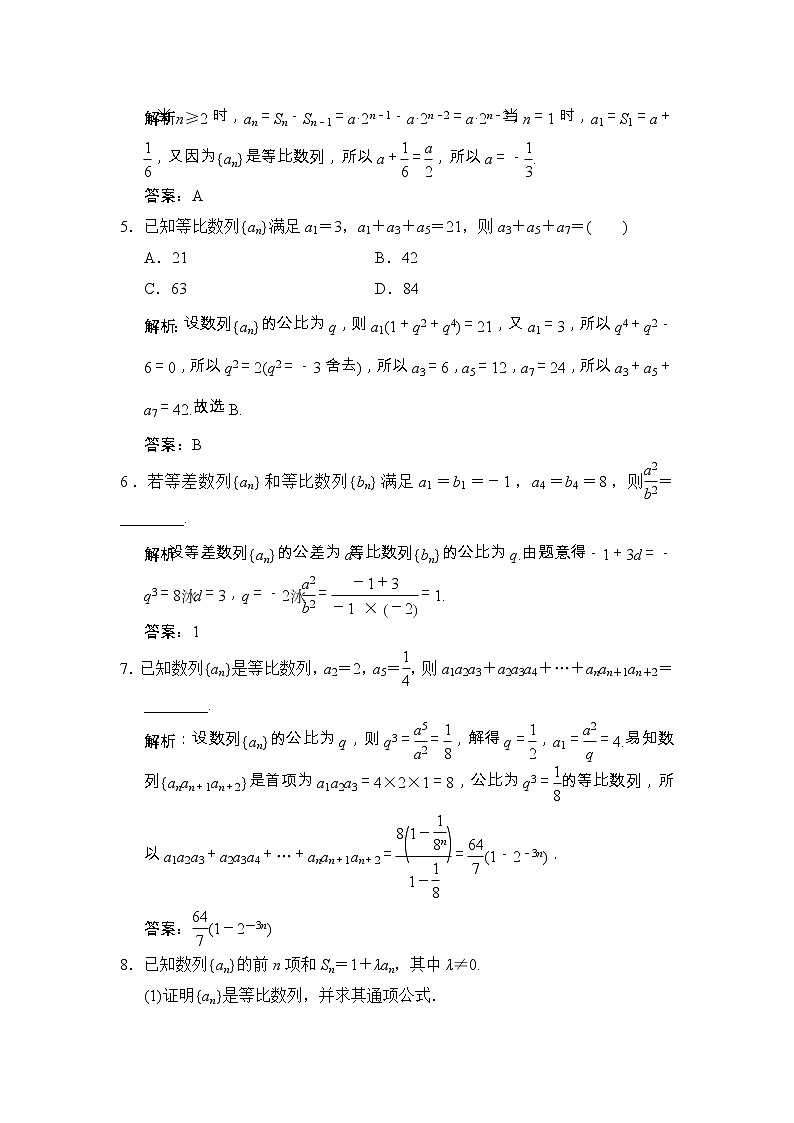 解析:当 n≥2 时,aₙ=Sₙ-Sₙ₋₁=a·2ⁿ⁻¹-a·2ⁿ⁻²=a·2ⁿ⁻²,当 n=1 时,a₁=S₁=a+
1/6,又因为{aₙ}是等比数列,所以 a+1/6=a/2,所以 a=-1/3.
答案:A
5.已知等比数列{aₙ}满足 a₁=3,a₁+a₃+a₅=21,则 a₃+a₅+a₇=(  )
A.21 B.42
C.63 D.84
解析:设数列{aₙ}的公比为 q,则 a₁(1+q2+q4)=21,又 a₁=3,所以 q4+q2-
6=0,所以 q2=2(q2=-3 舍去),所以 a₃=6,a₅=12,a₇=24,所以 a₃+a₅+
a₇=42.故选 B.
答案:B
6.若等差数列{aₙ}和等比数列{bₙ}满足 a₁=b₁=-1,a₄=b₄=8,则a2/b2=
________.
解析:设等差数列{aₙ}的公差为 d,等比数列{bₙ}的公比为 q.由题意得-1+3d=-
q3=8⇒d=3,q=-2⇒a2/b2=(-1+3)/(-1×(-2))=1.
答案:1
7.已知数列{aₙ}是等比数列,a₂=2,a₅=1/4,则 a₁a₂a₃+a₂a₃a₄+…+aₙaₙ₊₁aₙ₊₂=
________.
解析:设数列{aₙ}的公比为 q,则 q3=a5/a2=1/8,解得 q=1/2,a₁=a2/q=4.易知数
列{aₙaₙ₊₁aₙ₊₂}是首项为 a₁a₂a₃=4×2×1=8,公比为 q3=1/8的等比数列,所
以 a₁a₂a₃+a₂a₃a₄+…+aₙaₙ₊₁aₙ₊₂=8(1-1/8n)/(1-1/8)=64/7(1-2-3n).
答案:64/7(1-2-3n)
8.已知数列{aₙ}的前 n 项和 Sₙ=1+λaₙ,其中 λ≠0.
(1)证明{aₙ}是等比数列,并求其通项公式.